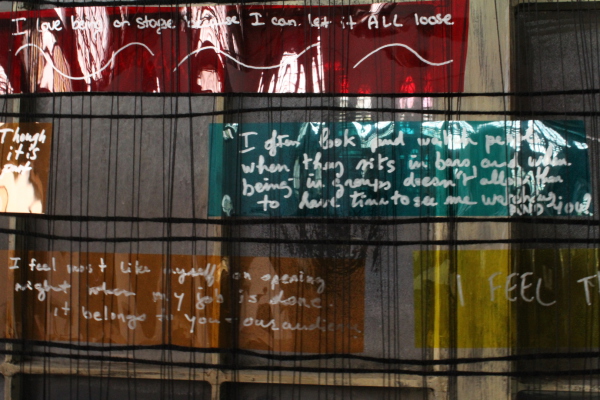 I love being on stage because I can let it ALL loose
Though
it's
I often look and watch people
when they sits in bars and when
being in groups doesn't allow them
to have time to see me watching
AND YOU
I feel most like myself on opening
night when my job is done.
it belongs to you - our audience
I FEEL